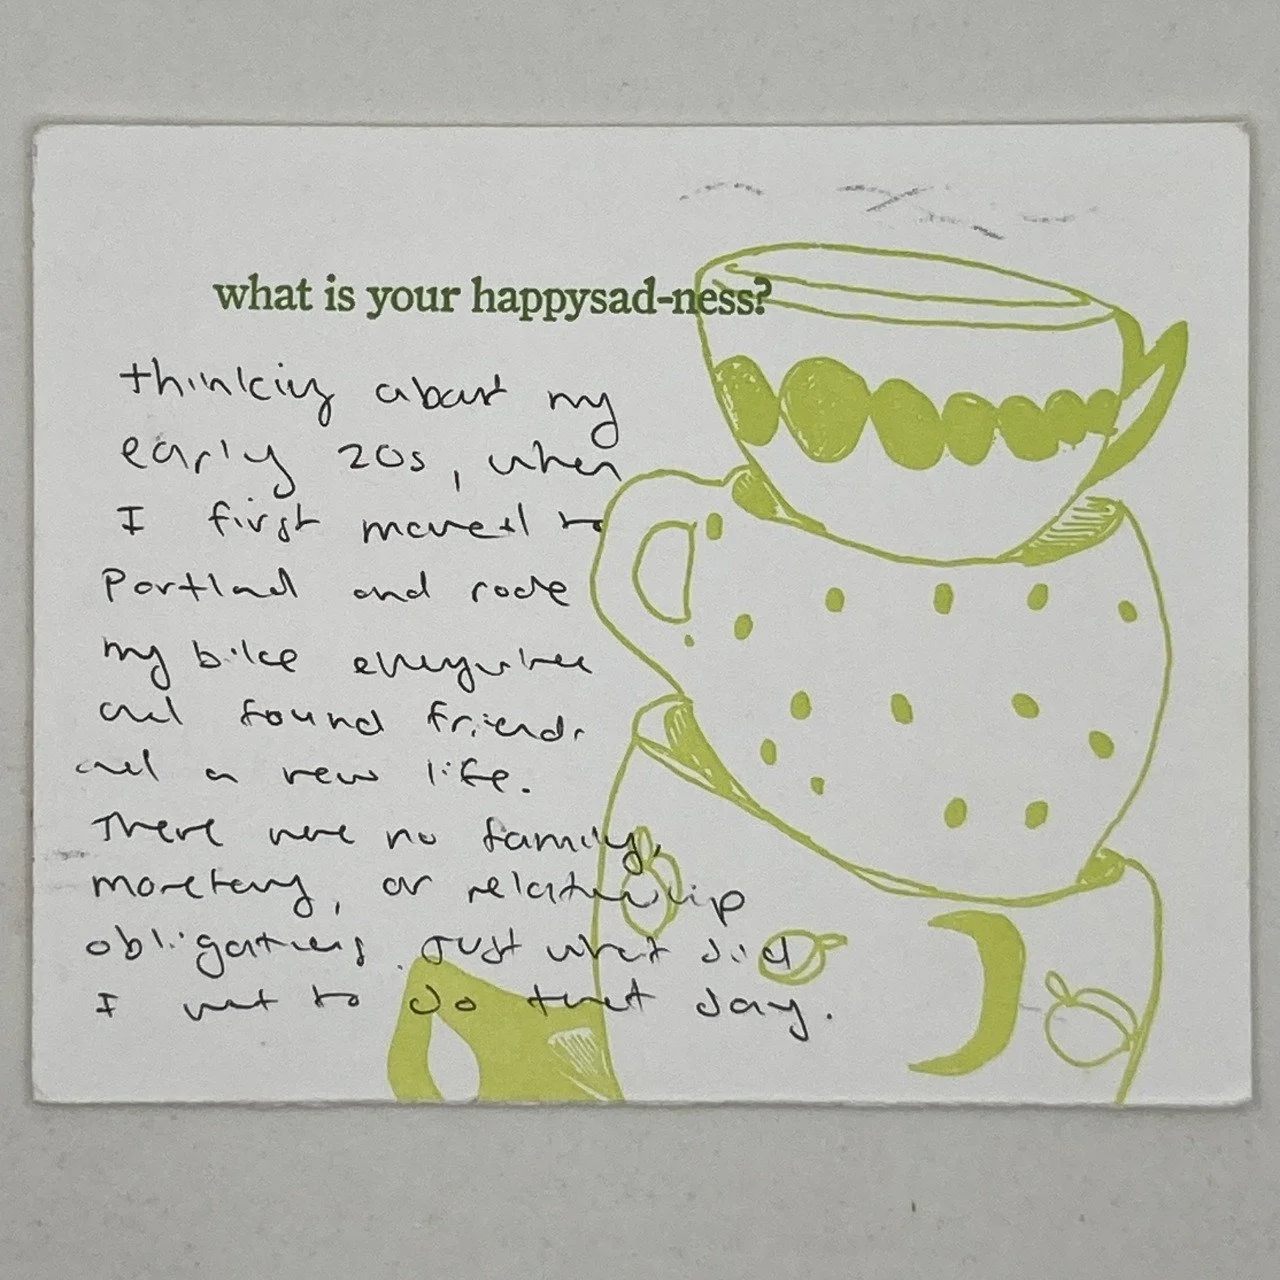 what is your happysad-ness?
thinking about my
early 20s, when
I first moved to
Portland and rode
my bike everywhere
and found friends
and a new life.
There were no family,
monetary, or relationship
obligations. Just what did
I want to do that day.